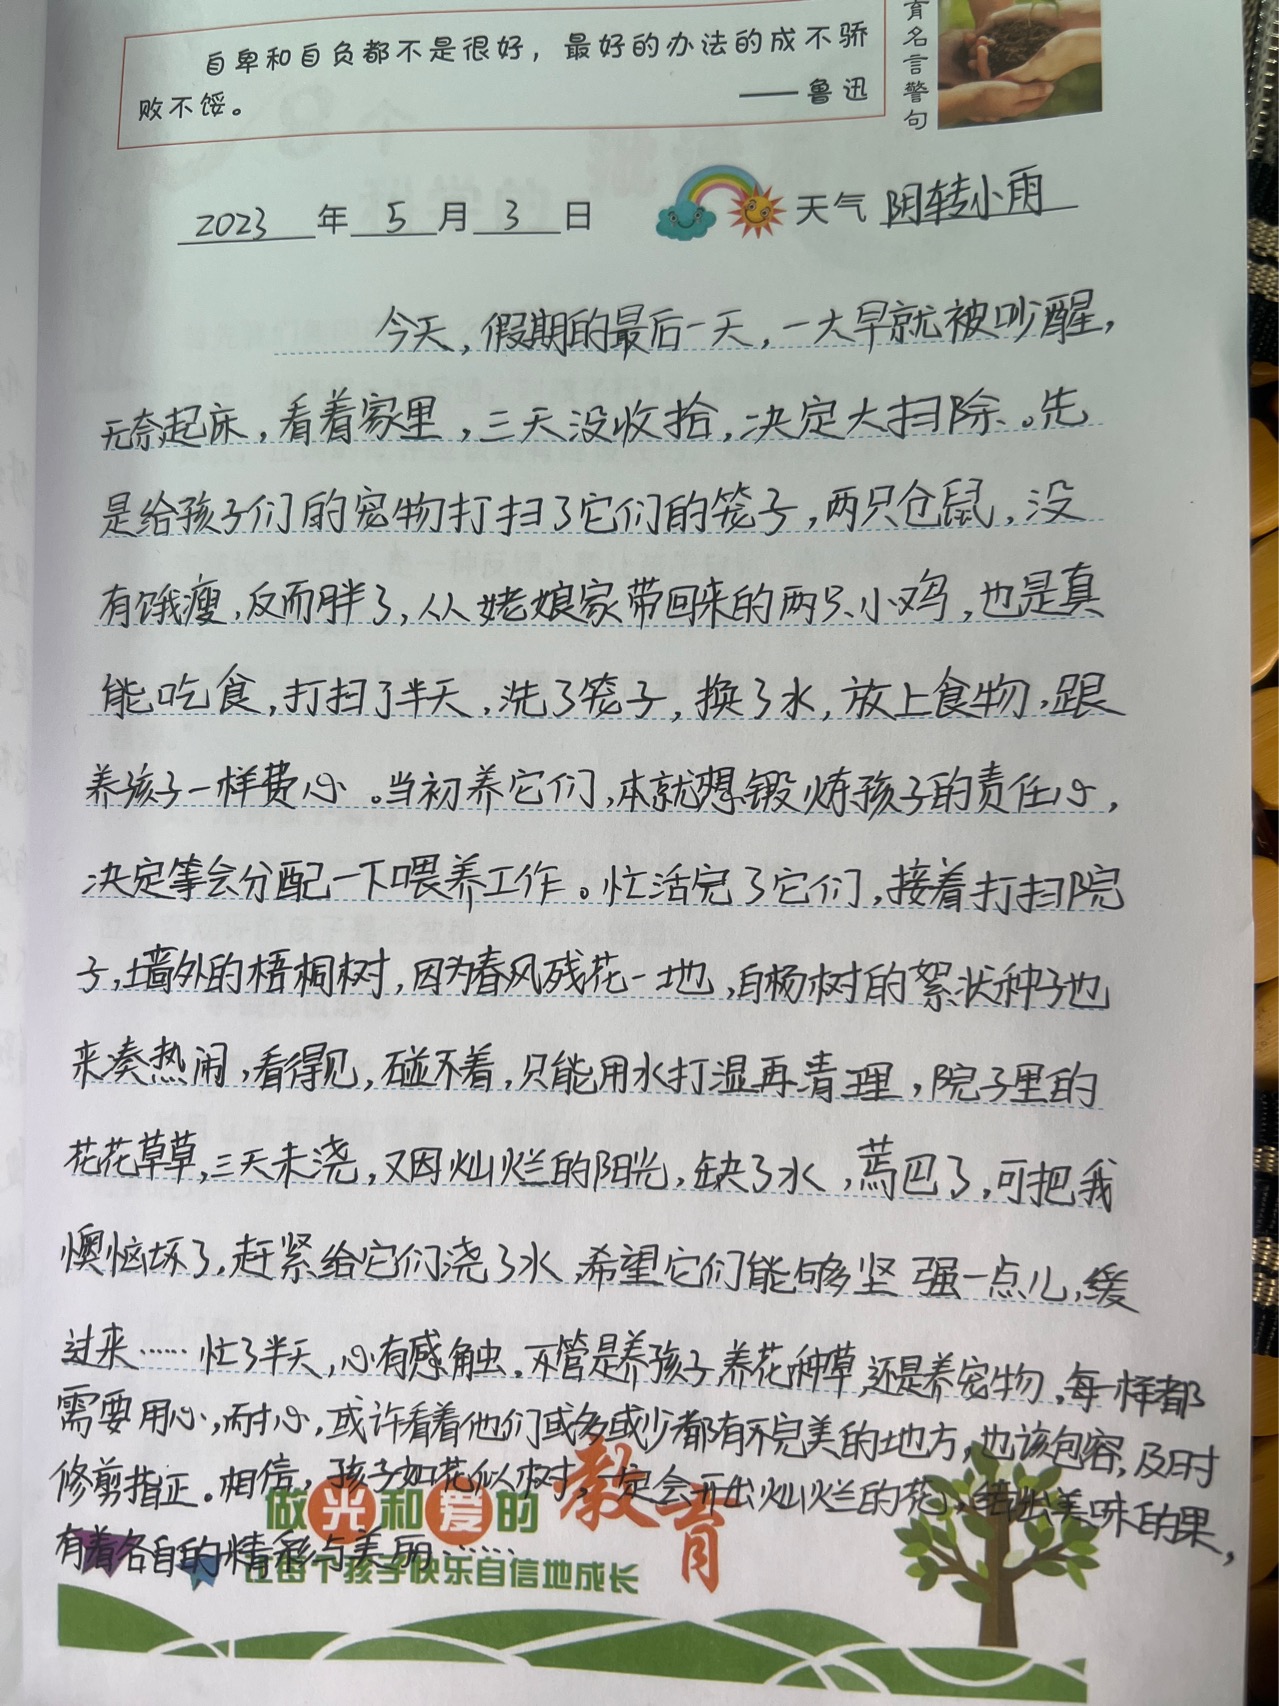 自卑和自负都不是很好，最好的办法的成不骄
败不馁。
——鲁迅
育名言警句
2023年5月3日
天气 阴转小雨
今天，假期的最后一天，一大早就被吵醒，
无奈起床，看着家里，三天没收拾，决定大扫除。先
是给孩子们的宠物打扫了它们的笼子，两只仓鼠，没
有饿瘦，反而胖了，从姥娘家带回来的两只小鸡，也是真
能吃食，打扫了半天，洗了笼子，换了水，放上食物，跟
养孩子一样费心。当初养它们，本就想锻炼孩子的责任心，
决定等会分配一下喂养工作。忙活完了它们，接着打扫院
子，墙外的梧桐树，因为春风残花一地，白杨树的絮状种子也
来凑热闹，看得见，碰不着，只能用水打湿再清理，院子里的
花花草草，三天未浇，又因灿烂的阳光，缺了水，蔫巴了，可把我
懊恼坏了，赶紧给它们浇了水，希望它们能够坚强一点儿，缓
过来……忙了半天，心有感触。不管是养孩子，养花种草，还是养宠物，每一样都
需要用心，耐心，或许看着他们或多或少都有不完美的地方，也该包容，及时
修剪指正。相信，孩子如花似树，一定会开出灿烂的花，结出美味的果，
有着各自的精彩与美丽……
做光和爱的教育
让每个孩子快乐自信地成长